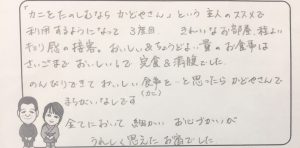 「カニをたのしむなら かどやさん」という 主人のススメで
利用するようになって 3度目. きれいなお部屋、程よい
キョリ感の接客。おいしい&ちょうどよい量のお食事は
さいごまでおいしい!で 完食&満腹でした.
のんびりできておいしい食事を…と思ったら かどやさんで
(カニ)
まちがいなしです
全てにおいて 細かい お心づかいが
うれしく思えたお宿でした.